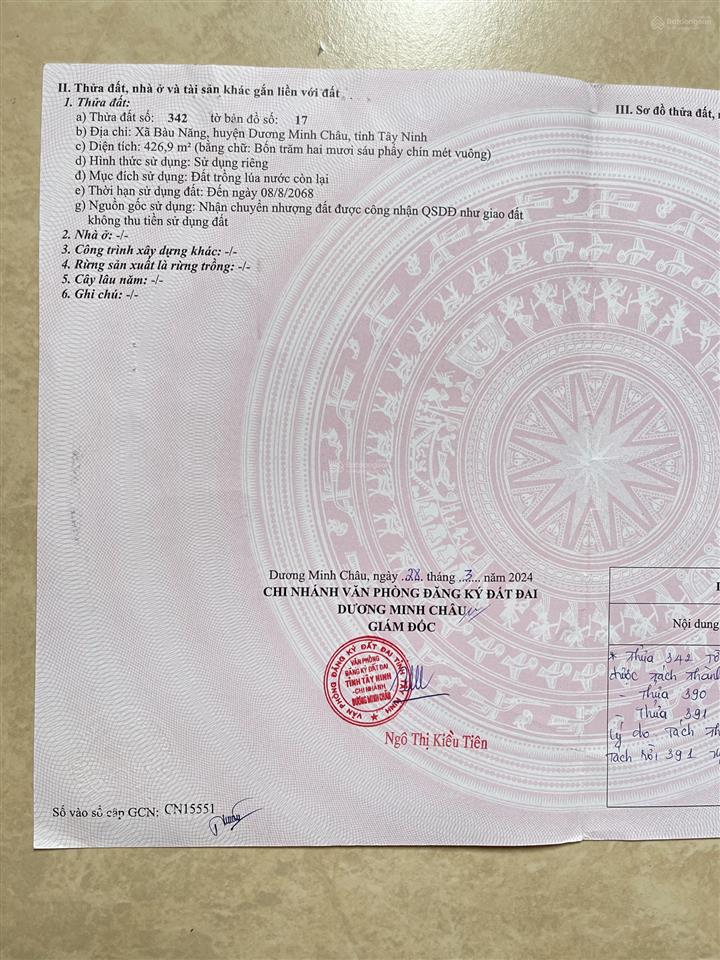 Batdongsan
II. Thửa đất, nhà ở và tài sản khác gắn liền với đất
1. Thửa đất:
a) Thửa đất số: 342 tờ bản đồ số: 17
b) Địa chỉ: Xã Bàu Năng, huyện Dương Minh Châu, tỉnh Tây Ninh
c) Diện tích: 426,9 m² (bằng chữ: Bốn trăm hai mươi sáu phẩy chín mét vuông)
d) Hình thức sử dụng: Sử dụng riêng
đ) Mục đích sử dụng: Đất trồng lúa nước còn lại
e) Thời hạn sử dụng đất: Đến ngày 08/8/2068
g) Nguồn gốc sử dụng: Nhận chuyển nhượng đất được công nhận QSDĐ như giao đất
không thu tiền sử dụng đất
2. Nhà ở: -/-
3. Công trình xây dựng khác: -/-
4. Rừng sản xuất là rừng trồng: -/-
5. Cây lâu năm: -/-
6. Ghi chú: -/-
III. Sơ đồ thửa đất,
Dương Minh Châu, ngày 28 tháng 3 năm 2024
CHI NHÁNH VĂN PHÒNG ĐĂNG KÝ ĐẤT ĐAI
DƯƠNG MINH CHÂU
GIÁM ĐỐC
VĂN PHÒNG ĐĂNG KÝ ĐẤT ĐAI TỈNH TÂY NINH
VĂN PHÒNG
ĐĂNG KÝ ĐẤT ĐAI
TỈNH TÂY NINH
-CHI NHÁNH
DƯƠNG MINH CHÂU
Ngô Thị Kiều Tiên
Số vào sổ cấp GCN: CN15551
Nội dung
* Thửa 342 tờ
được tách thành
- Thửa 390
- Thửa 391
Lý do tách
Tách rồi 391